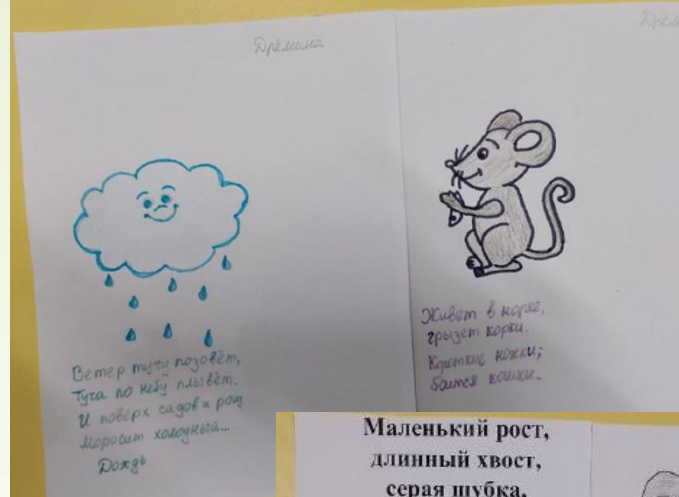 Дрёмина
Ветер тучу позовёт,
Туча по небу плывёт.
И поверх садов и рощ
Моросит холодный...
Дождь
Живет в норке,
грызет корки.
Короткие ножки;
боится кошки.
Маленький рост,
длинный хвост,
серая шубка,